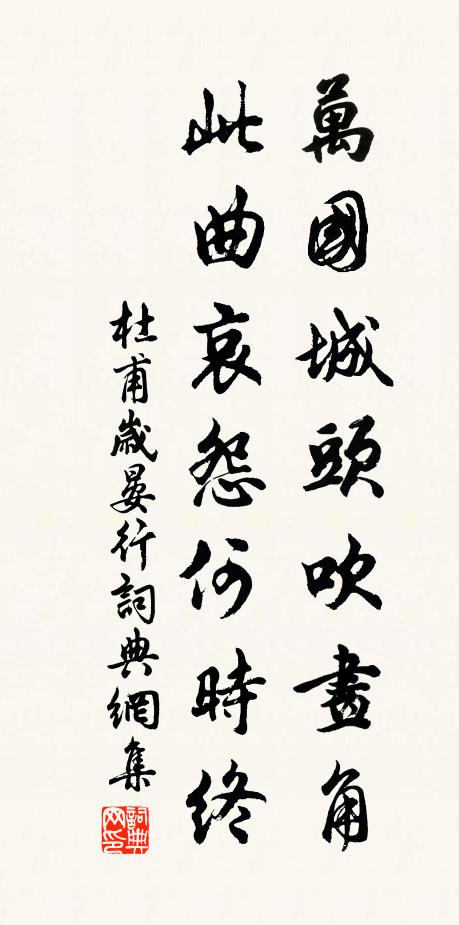 萬國城頭吹畫角
此曲哀怨何時終
杜甫歲晏行詞典網集
詞典网印